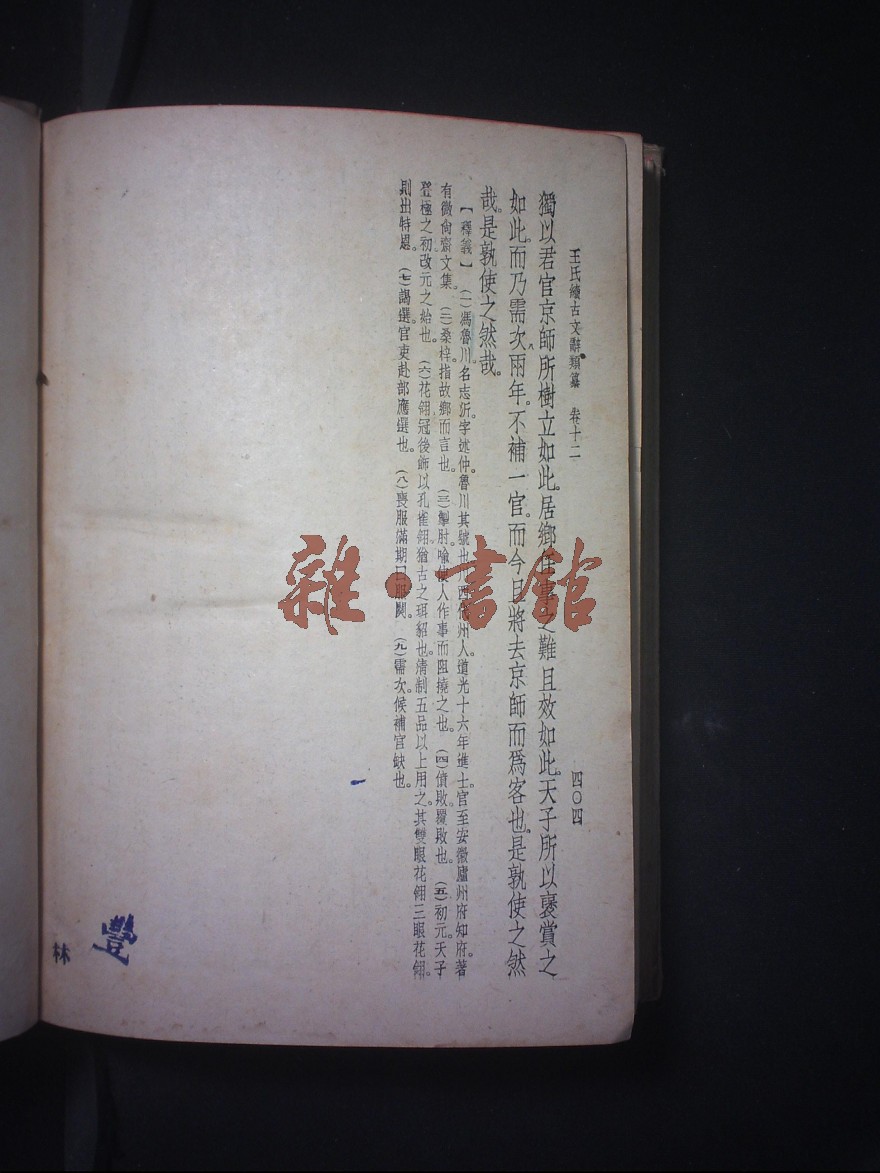 王氏續古文辭類纂 卷十二 四〇四
獨以君官京師所樹立如此。居鄉任事之難且效如此。天子所以褒賞之
如此。而乃需次八兩年。不補一官。而今且將去京師而爲客也。是孰使之然
哉。是孰使之然哉。
【釋義】 (一)馮魯川。名志沂。字述仲。魯川其號也。山西代州人。道光十六年進士。官至安徽廬州府知府。著
有微尙齋文集。 (二)桑梓。指故鄉而言也。 (三)掣肘。喻使人作事而阻撓之也。 (四)僨敗。覆敗也。 (五)初元。天子
登極之初。改元之始也。 (六)花翎。冠後飾以孔雀翎。猶古之珥貂也。淸制五品以上用之。其雙眼花翎三眼花翎。
則出特恩。 (七)謁選。官吏赴部應選也。 (八)喪服滿期曰服闋。 (九)需次。候補官缺也。
雜·書館
豐
林